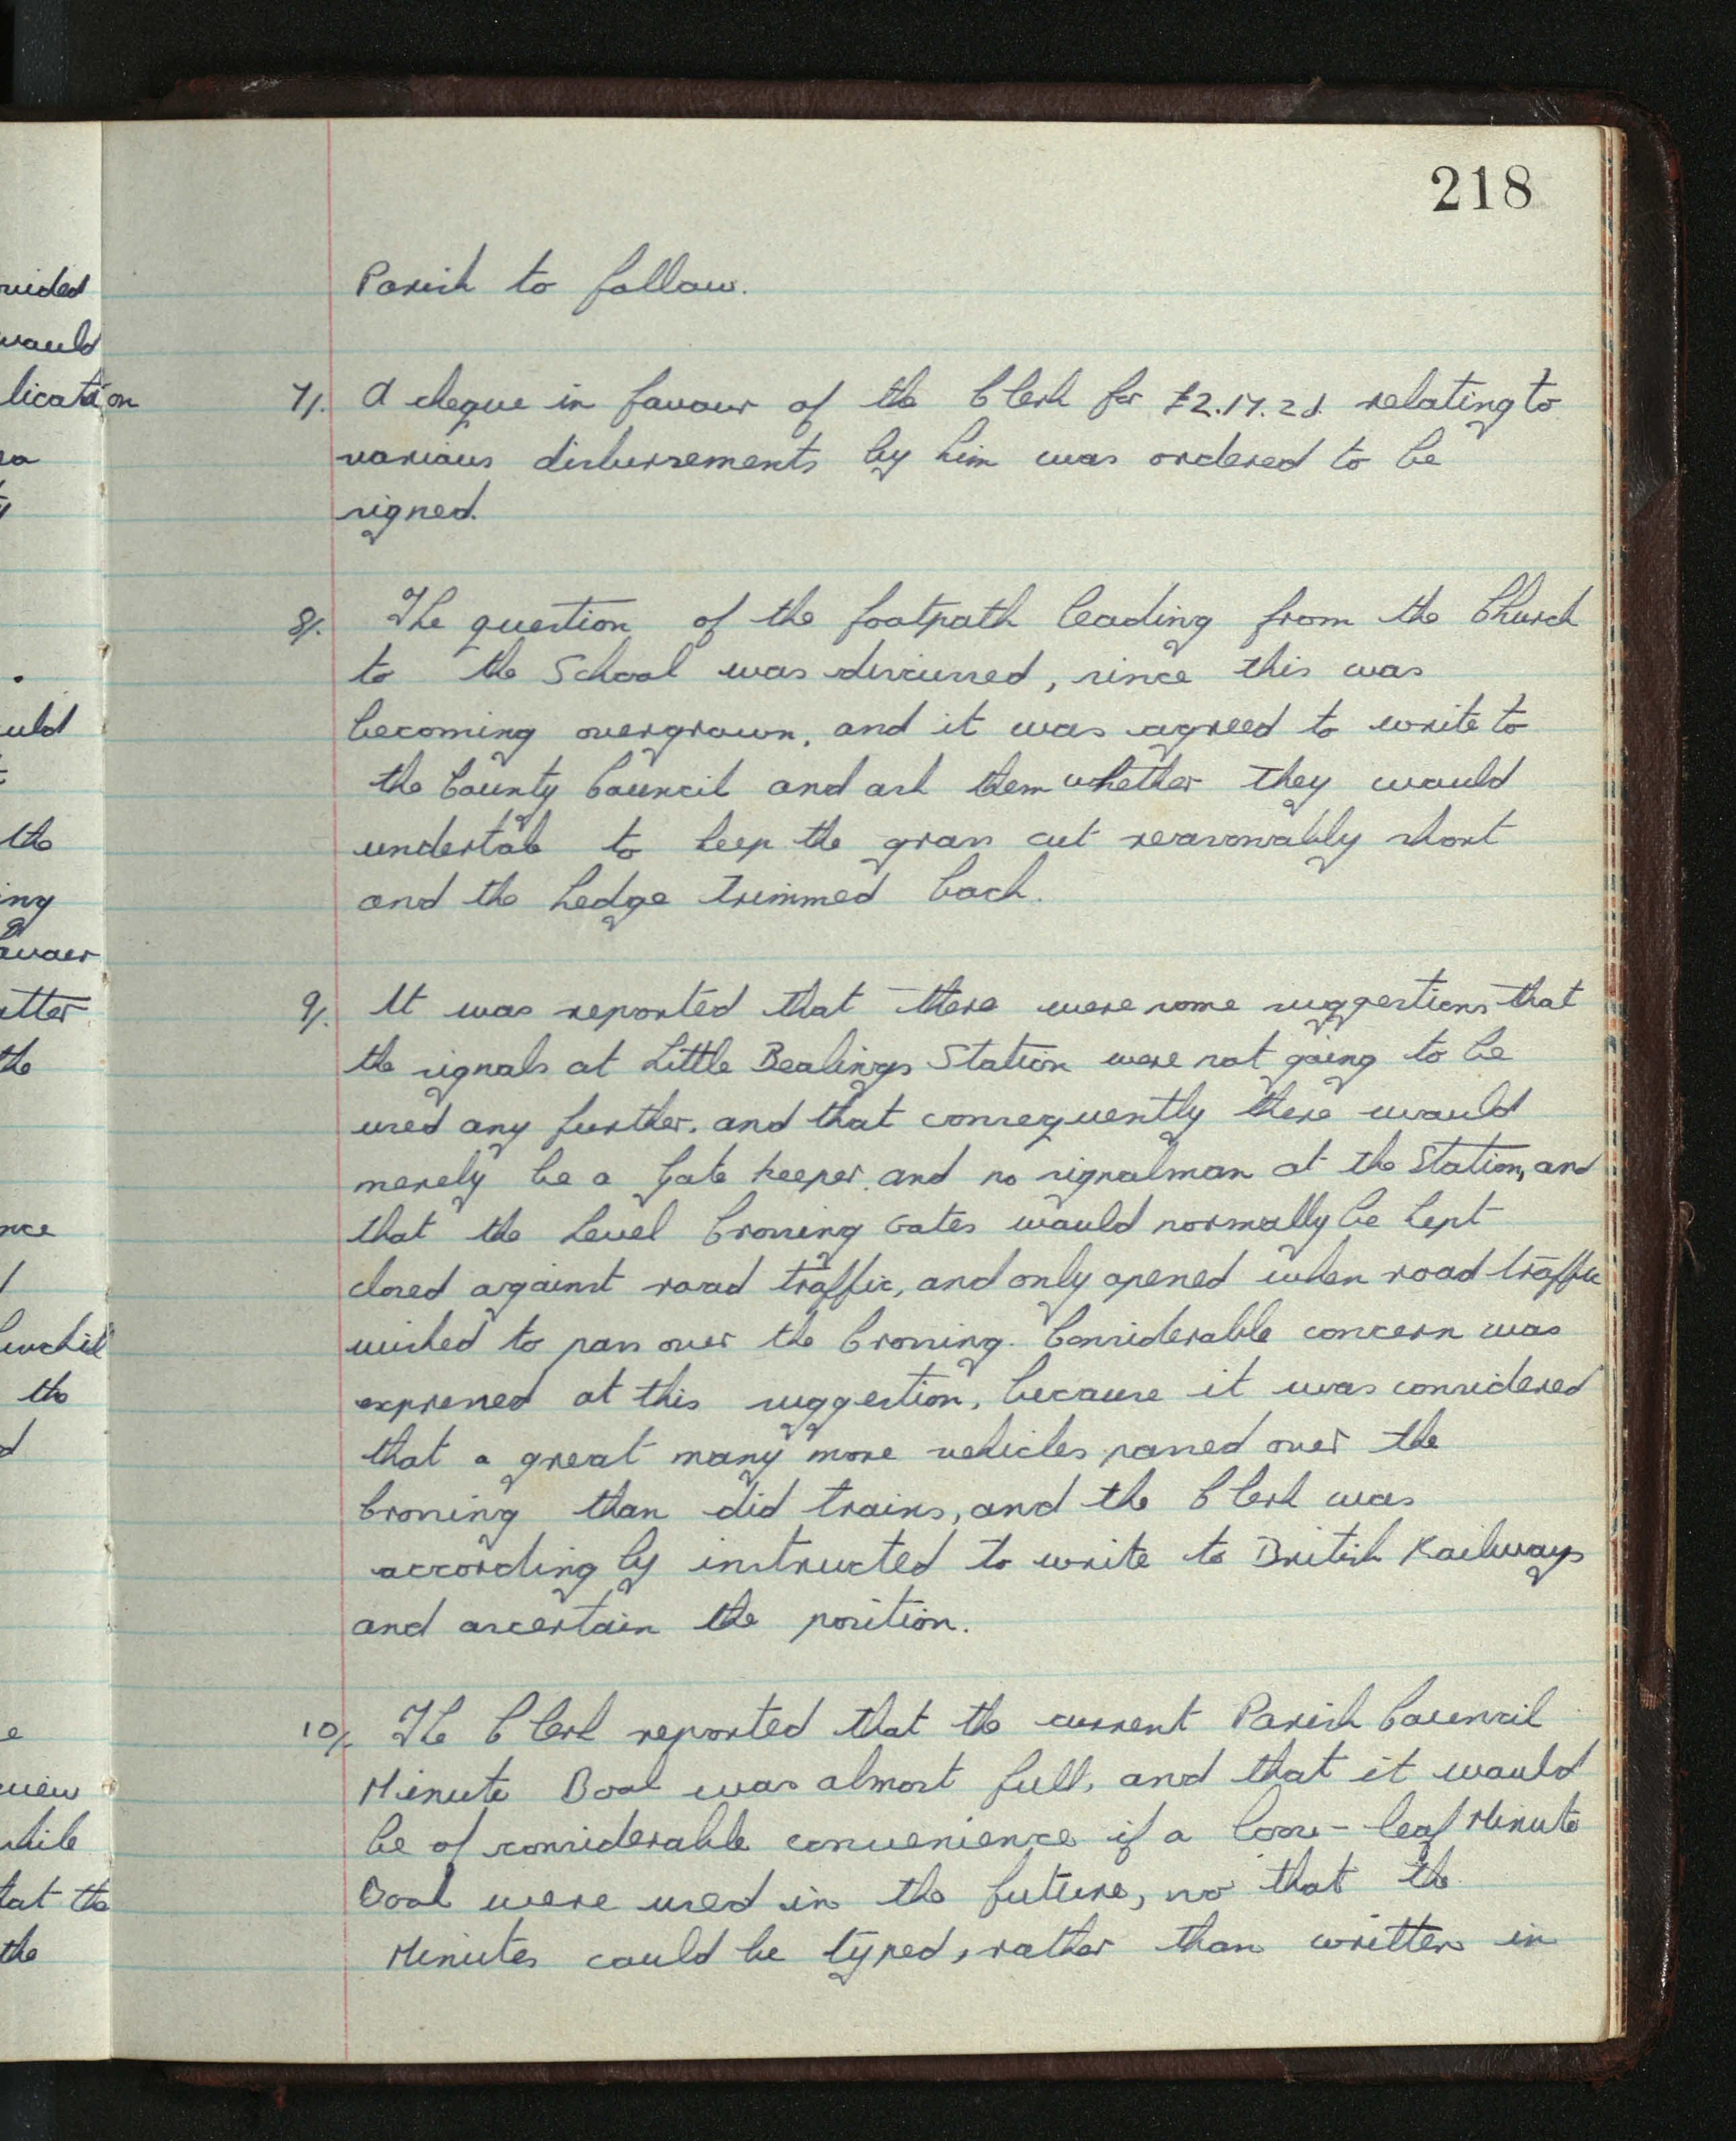 218
Parish to follow.
7/. A cheque in favour of the Clerk for £2.17.2d. relating to
various disbursements by him was ordered to be
signed.
8/. The question of the footpath leading from the Church
to the School was discussed, since this was
becoming overgrown, and it was agreed to write to
the County Council and ask them whether they would
undertake to keep the grass cut reasonably short
and the hedge trimmed back.
9/. It was reported that there were some suggestions that
the signals at Little Bealings Station were not going to be
used any further, and that consequently there would
merely be a Gate keeper and no signalman at the Station, and
that the Level Crossing Gates would normally be kept
closed against road traffic, and only opened when road traffic
wished to pass over the Crossing. Considerable concern was
expressed at this suggestion, because it was considered
that a great many more vehicles passed over the
Crossing than did trains, and the Clerk was
accordingly instructed to write to British Railways
and ascertain the position.
10/. The Clerk reported that the current Parish Council
Minute Book was almost full, and that it would
be of considerable convenience if a loose-leaf Minute
Book were used in the future, so that the
Minutes could be typed, rather than written in